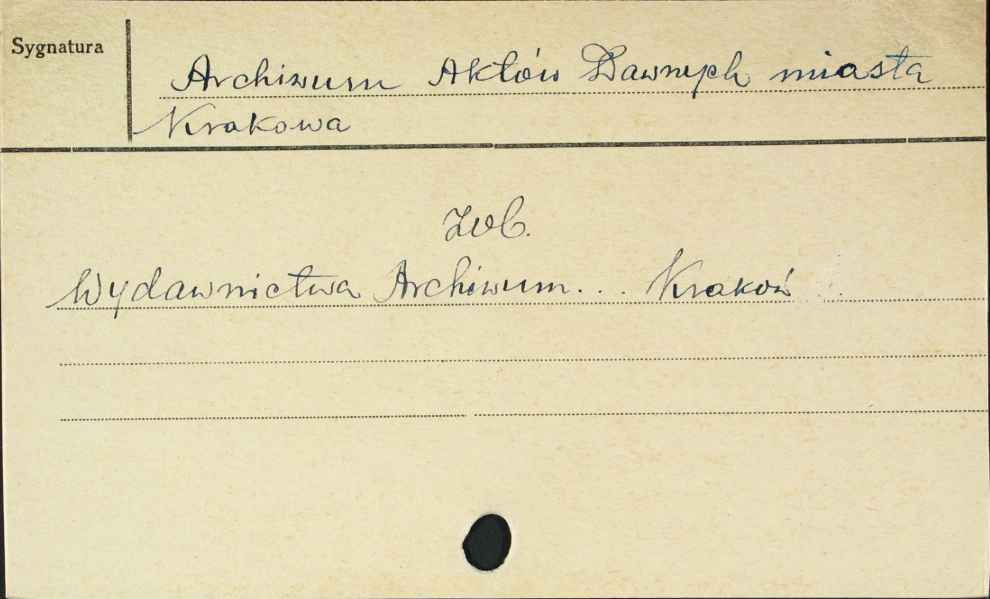 Sygnatura
Archiwum Aktów Dawnych miasta
Krakowa
Zob.
Wydawnictwa Archiwum... Kraków